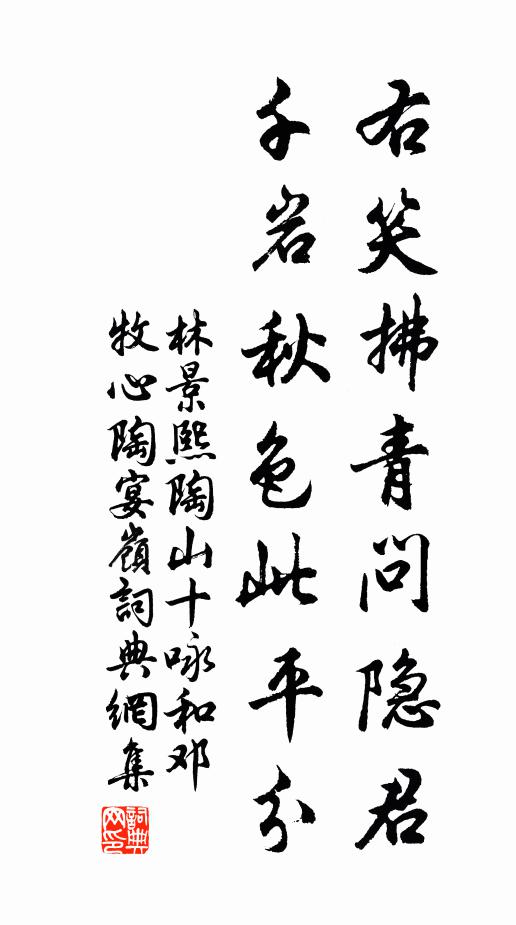 右笑拂青问隐君
千岩秋色此平分
林景熙陶山十咏和邓
牧心陶宴嶺詞典網集
詞典网印